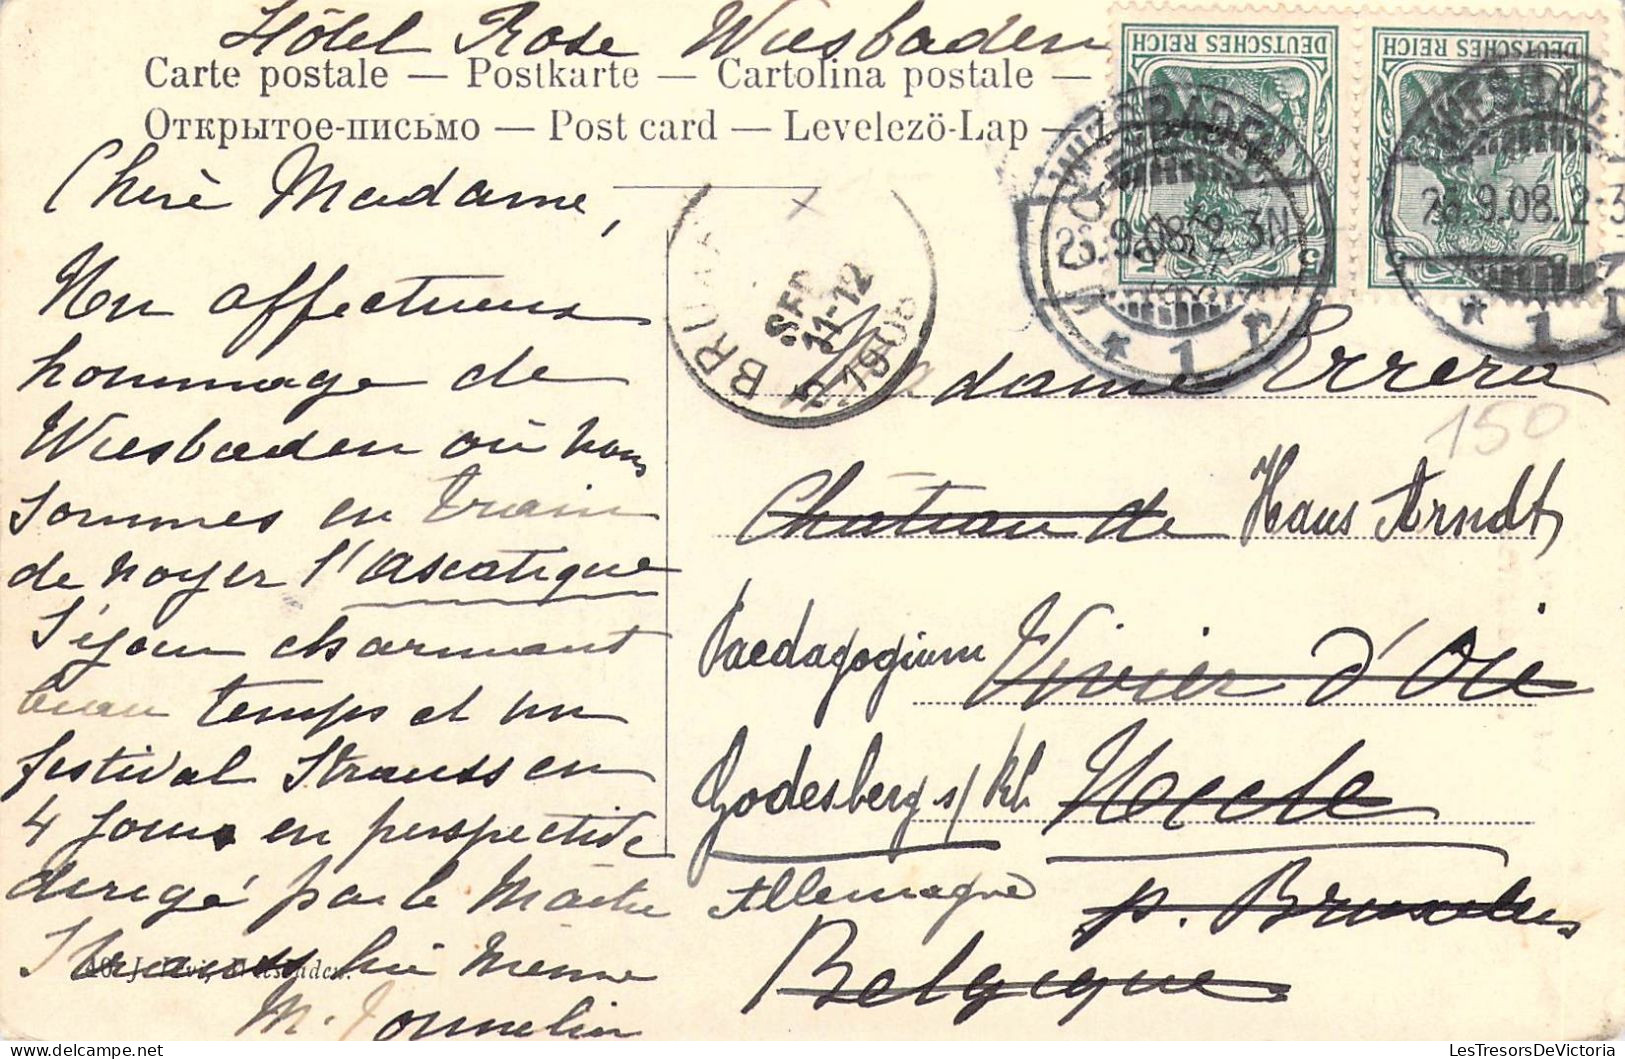 Hôtel Rose Wiesbaden
Carte postale — Postkarte — Cartolina postale —
Открытое-письмо — Post card — Levelező-Lap —
Chère Madame,
affectueux
hommage de
Wiesbaden où nous
sommes en train
de noyer l'asiatique
Séjour charmant
beau temps et un
festival Strauss en
4 jours en perspective
dirigé par le Maître
Strauss lui même
M.
DEUTSCHES REICH
DEUTSCHES REICH
5
WIESBADEN
26.9.08. 2-3N
* 1 r
26.9.08. 2-3
* 1 r
SEPT
11-12
1908
Madame Errera
150
Château de Haus Arndt,
Paedagogium Vivier d'Oie
Godesberg s/ Rh. Uccle
Allemagne p. Bruxelles
Belgique
LesTresorsDeVictoria